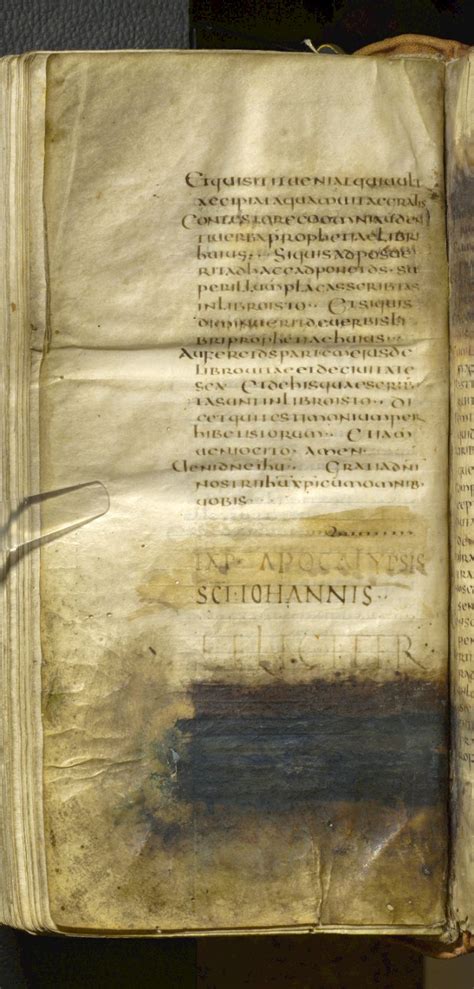 Et qui sitit ueniat qui uult
accipiat aquam uitae gratis
Contestor ego omni audien
ti uerba prophetiae libri
huius · Si quis adposue
rit ad haec adponet ds su
per illum plagas scribtas
in libro isto · Et si quis
diminuerit de uerbis li
bri prophetiae huius ·
Auferet ds partem ejus de
libro uitae et de ciuitate
sca Et de his quae scrib
ta sunt in libro isto · Di
cit qui testimonium per
hibet istorum · Etiam
uenio cito · Amen
Ueni dne ihu · Gratia dni
nostri ihu xpi cum omnib·
uobis ·
EXP· APOCALYPSIS
SCI·IOHANNIS·
FELICITER